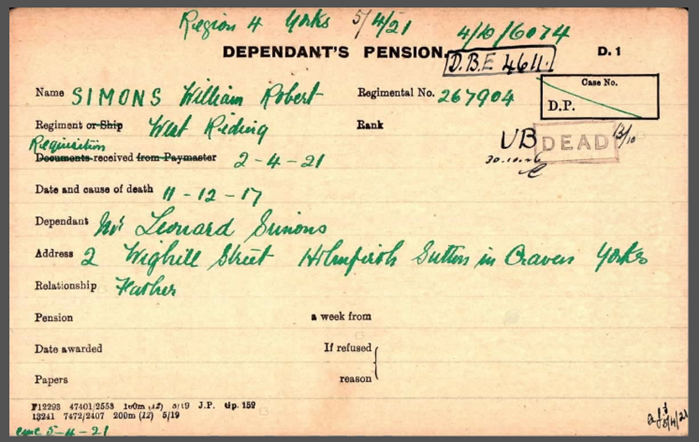 Region 4 Yorks 5/4/21 4/10/6074
DEPENDANT'S PENSION. D.B.E 4611. D. 1
Name SIMONS William Robert Regimental No. 267904 Case No. D.P.
Regiment or Ship West Riding Rank UB DEAD 13/10
Requisition
Documents received from Paymaster 2-4-21 30.10.26
Date and cause of death 11-12-17
Dependant Mr Leonard Simons
Address 2 Wighill Street Holmfirth Sutton in Craven Yorks
Relationship Father
Pension a week from
Date awarded If refused
Papers reason
F12293 47401/2553 100m (12) 3/19 J.P. Gp. 152
13241 7472/2407 200m (12) 5/19
5-4-21 5/4/21